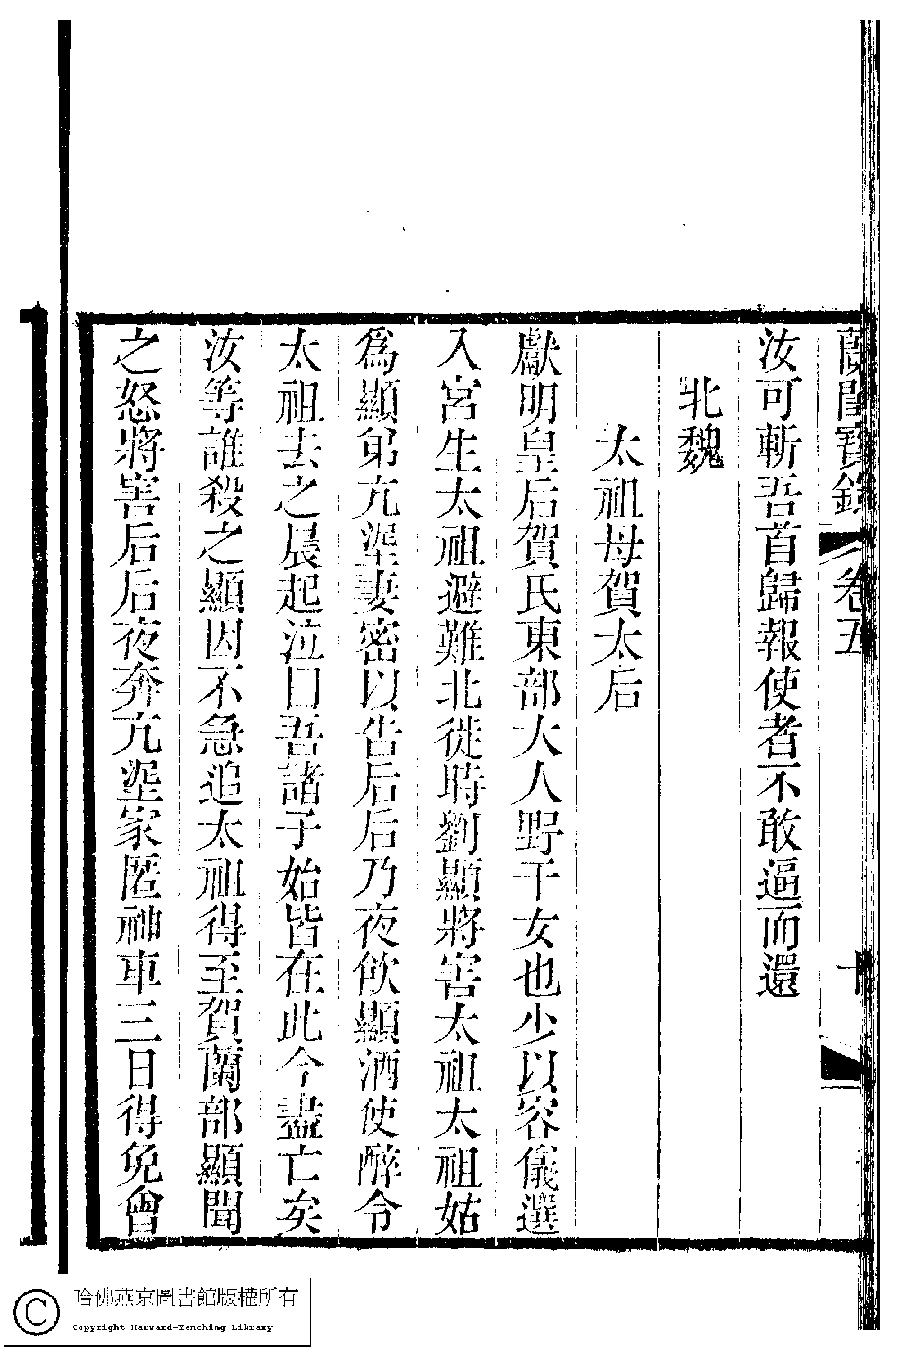 蘭閨寶錄 卷五 十
汝可斬吾首歸報使者不敢逼而還
北魏
太祖母賀太后
獻明皇后賀氏東部大人野干女也少以容儀選
入宮生太祖避難北徙時劉顯將害太祖太祖姑
爲顯弟亢埿妻密以告后后乃夜飲顯酒使醉令
太祖去之晨起泣曰吾諸子始皆在此今盡亡矣
汝等誰殺之顯因不急追太祖得至賀蘭部顯聞
之怒將害后后夜奔亢埿家匿神車三日得免曾
哈佛燕京圖書館版權所有
Copyright Harvard-Yenching Library